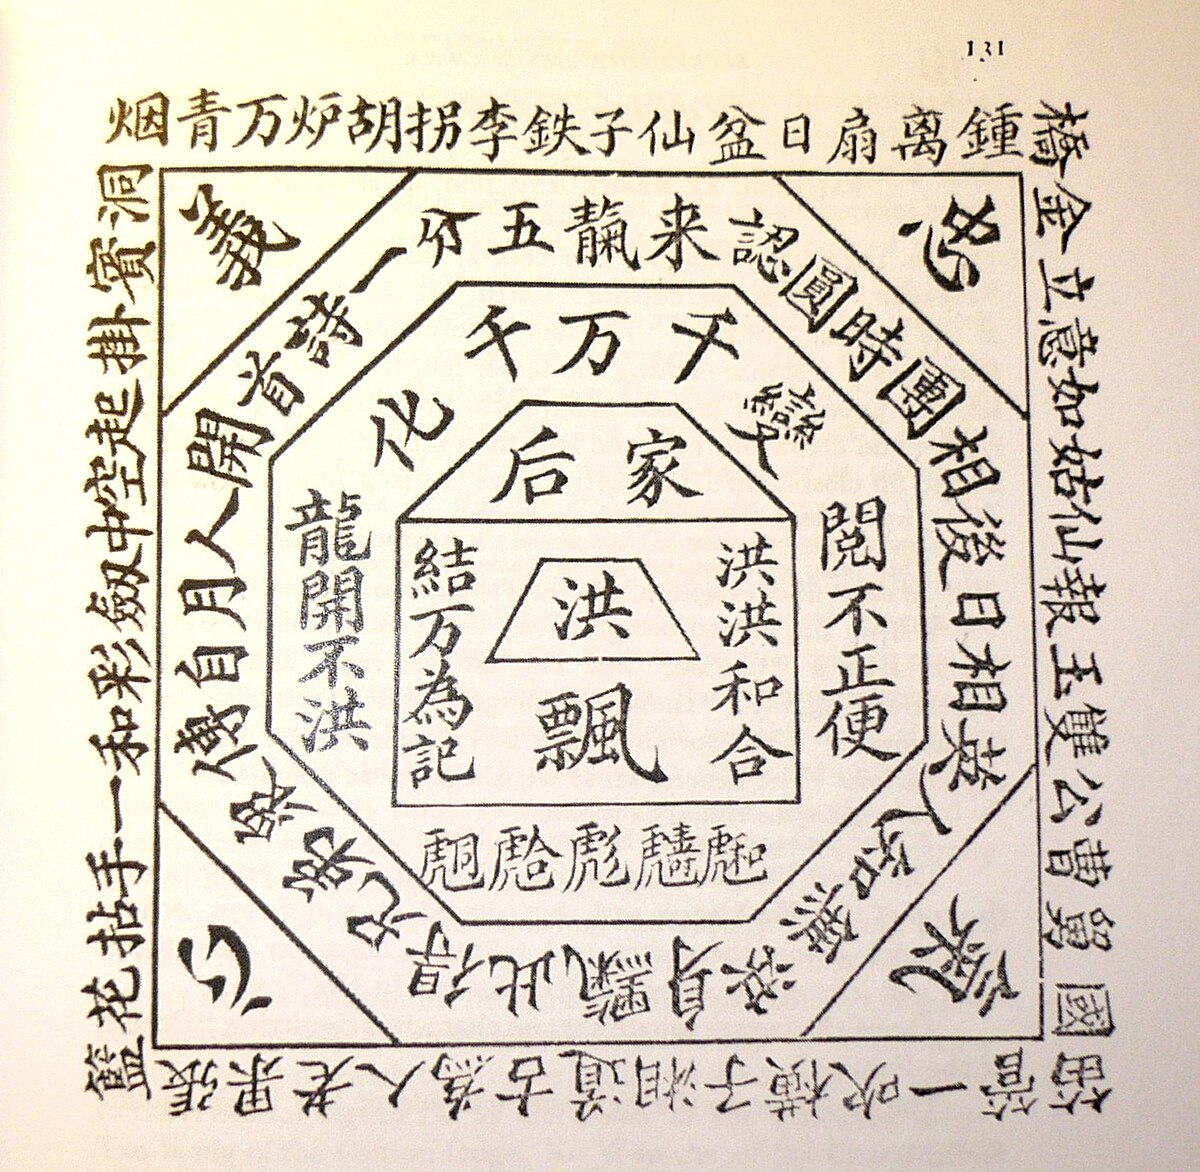 131
鍾离扇日盆仙子鉄李拐胡炉万青烟
洞賓掛起空中劔彩和一手拈花籃
張果老人為古道湘子横吹一管笛
國舅曹公雙玉報仙姑如意立金橋
義
家
来五分一
詩首開人月自傳
眾弟兄得此
身 無知人
英相日後相
團時圓認
千万千
變
化
龍開不洪
閲不正便
家后
結万為記
洪洪和合
洪
飄